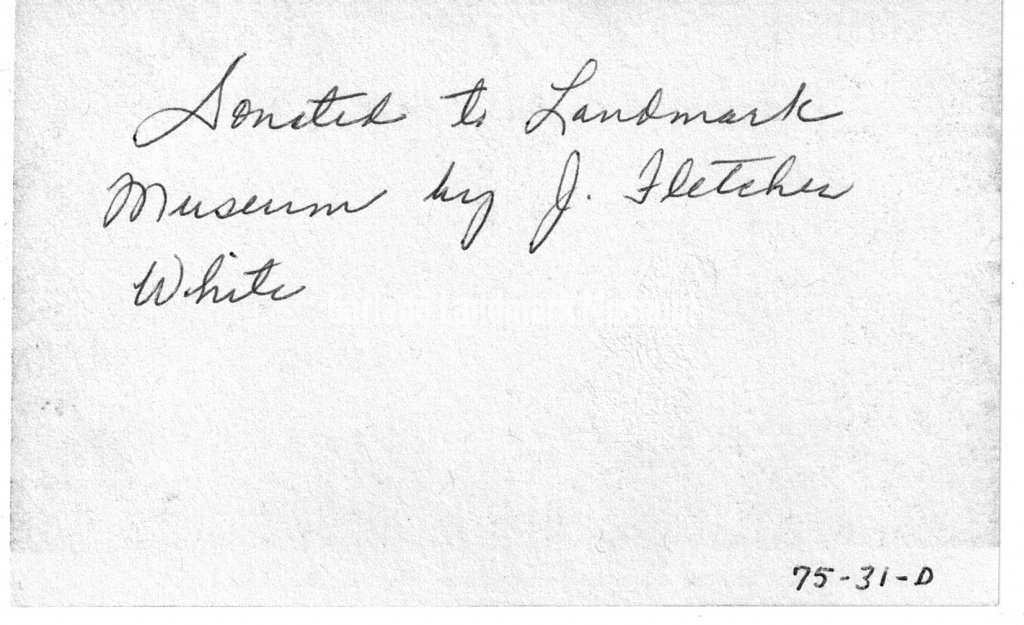 Donated to Landmark
Museum by J. Fletcher
White
Garland Landmark Museum
75-31-D